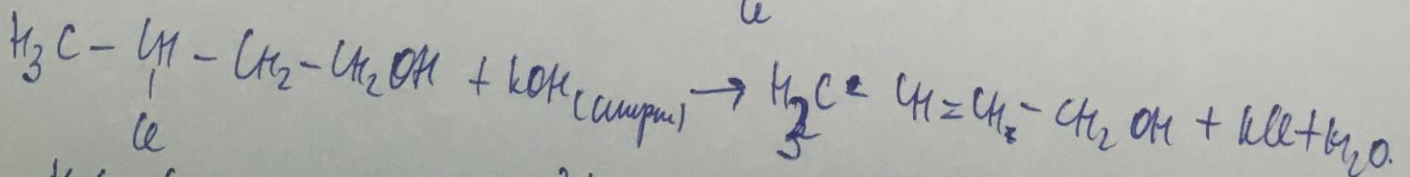 Cl
H₃C – CH – CH₂ – CH₂OH + KOH(спирт) → H₃C - CH = CH – CH₂OH + KCl + H₂O.
Cl